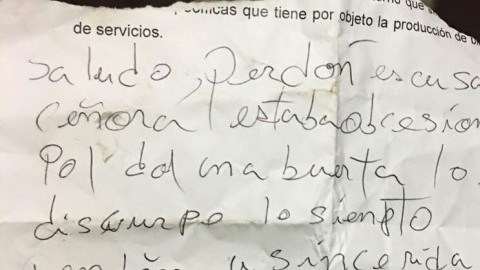 que tiene por objeto la producción de
de servicios.
saludo, perdón escusa
ceñora estaba obcesion
Pol dal una buerta lo
discurpo lo siento
sincerida